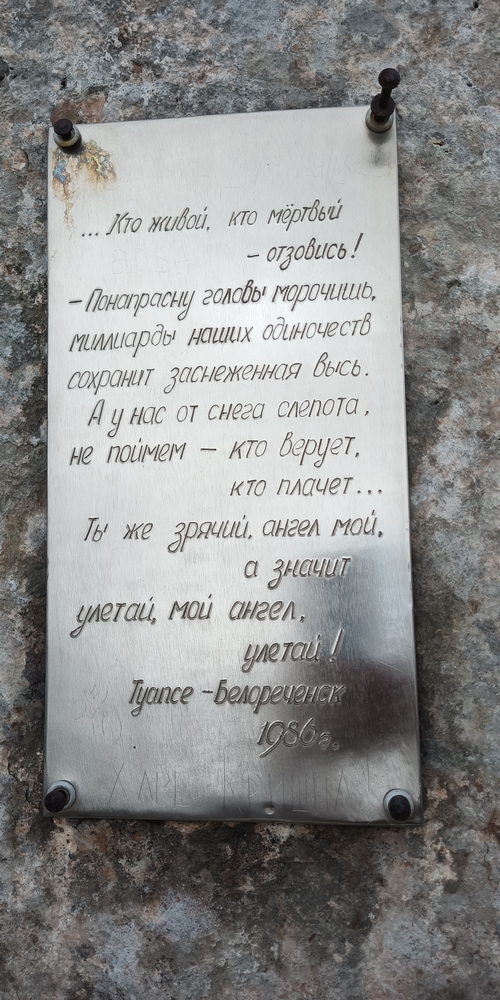 ... Кто живой, кто мёртвый
– отзовись!
– Понапрасну головы морочишь,
миллиарды наших одиночеств
сохранит заснеженная высь.
А у нас от снега слепота,
не поймем – кто верует,
кто плачет...
Ты же зрячий, ангел мой,
а значит
улетай, мой ангел,
улетай!
Туапсе – Белореченск
1986г.
ХАРЕ КРИШНА!